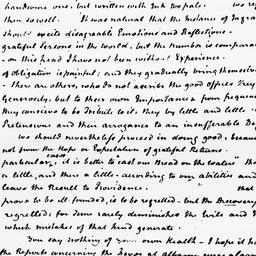 handsome one, but written with Ink too pale.
then so well. It was natural that the Instance of Ingra
should excite disagreeable Emotions and Reflections.
grateful Persons in the world, but the number is comparat
- on this head I have not been without Experience.
of obligation is painful; and they gradually bring themselve
- There are others, who do not ascribe the good offices they
Generosity, but to their own Importance & from frequen
they conceive to be Tribute to it; they by little and little
Pretensions and their arrogance to an insufferable De
we should nevertheless proceed in doing good; because
not from the Hope or Expectation of grateful Returns.
particular case, it is better to cast our Bread on the waters" th
a little, and there a little - according to our abilities and
leave the Result to Providence. that
prove to be ill-founded, is to be regretted - but the Discovery
regretted; for Time rarely diminishes the Evils and
which mistakes of that kind generate.
You say nothing of your own Health - I hope it ha
the Reports concerning the Fever at Albany, were